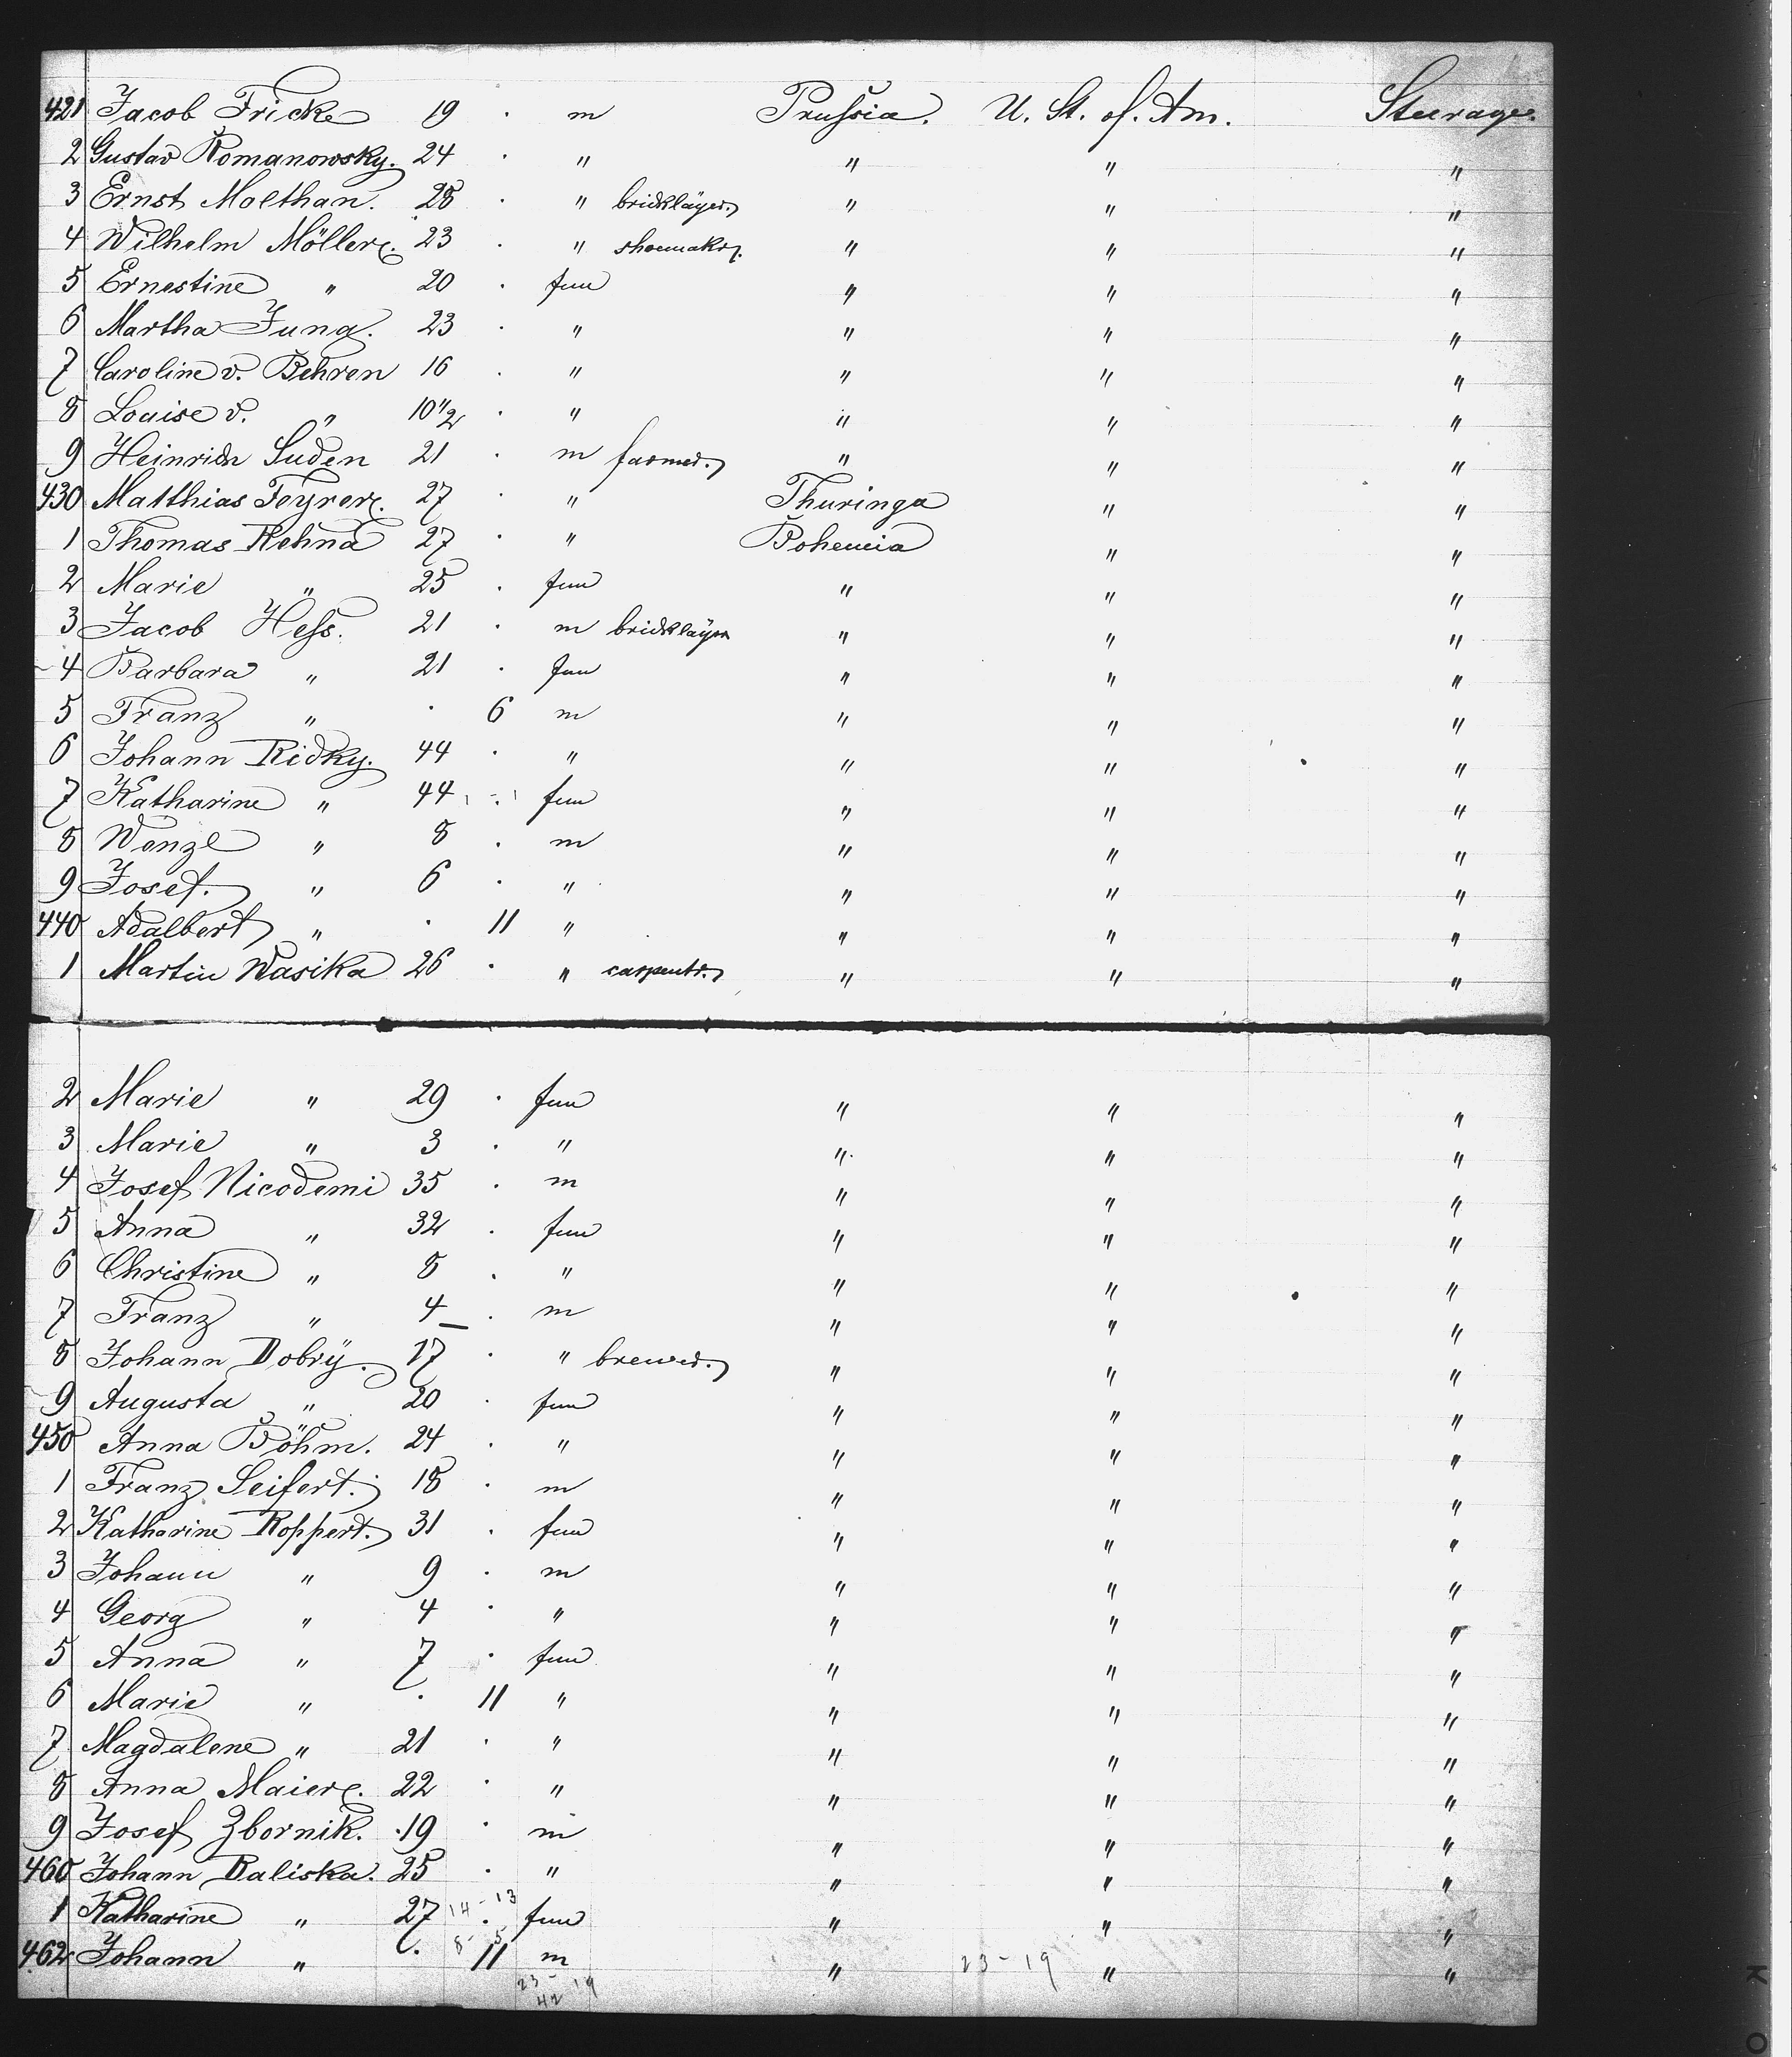 421 Jacob Fricke 19 . m Prussia. U. St. of. Am. Steerage.
2 Gustav Romanowsky. 24 . " " " "
3 Ernst Molthan. 28 . " bricklayer. " " "
4 Wilhelm Möller. 23 . " shoemakr. " " "
5 Ernestine " 20 . fem " " "
6 Martha Jung. 23 . " " " "
7 Caroline v. Behren 16 . " " " "
8 Louise v. " 10 1/2 . " " " "
9 Heinrich Suden 21 . m farmer. " " "
430 Matthias Feyrer. 27 . " Thuringa " "
1 Thomas Rehna 27 . " Bohemia " "
2 Marie " 25 . fem " " "
3 Jacob Hess. 21 . m bricklayer " " "
4 Barbara " 21 . fem " " "
5 Franz " . 6 m " " "
6 Johann Ridky. 44 . " " " "
7 Katharine " 44 . fem " " "
8 Wenzl " 8 . m " " "
9 Josef. " 6 . " " " "
440 Adalbert " . 11 " " " "
1 Martin Wasika 26 . " carpentr. " " "
2 Marie " 29 . fem " " "
3 Marie " 3 . " " " "
4 Josef Nicodemi 35 . m " " "
5 Anna " 32 . fem " " "
6 Christine " 8 . " " " "
7 Franz " 4 . m " " "
8 Johann Dobrÿ. 17 . " brewer. " " "
9 Augusta " 20 . fem " " "
450 Anna Böhm. 24 . " " " "
1 Franz Seifert. 18 . m " " "
2 Katharine Roppert. 31 . fem " " "
3 Johann " 9 . m " " "
4 Georg " 4 . " " " "
5 Anna " 7 . fem " " "
6 Marie " . 11 " " " "
7 Magdalene " 21 . " " " "
8 Anna Maier. 22 . " " " "
9 Josef Zbornik. 19 . m " " "
460 Johann Raliska. 25 . " " " "
1 Katharine " 27 14-13 . fem " " "
462 Johann " . 8-5 11 m " 23-19 " "
23-19
42